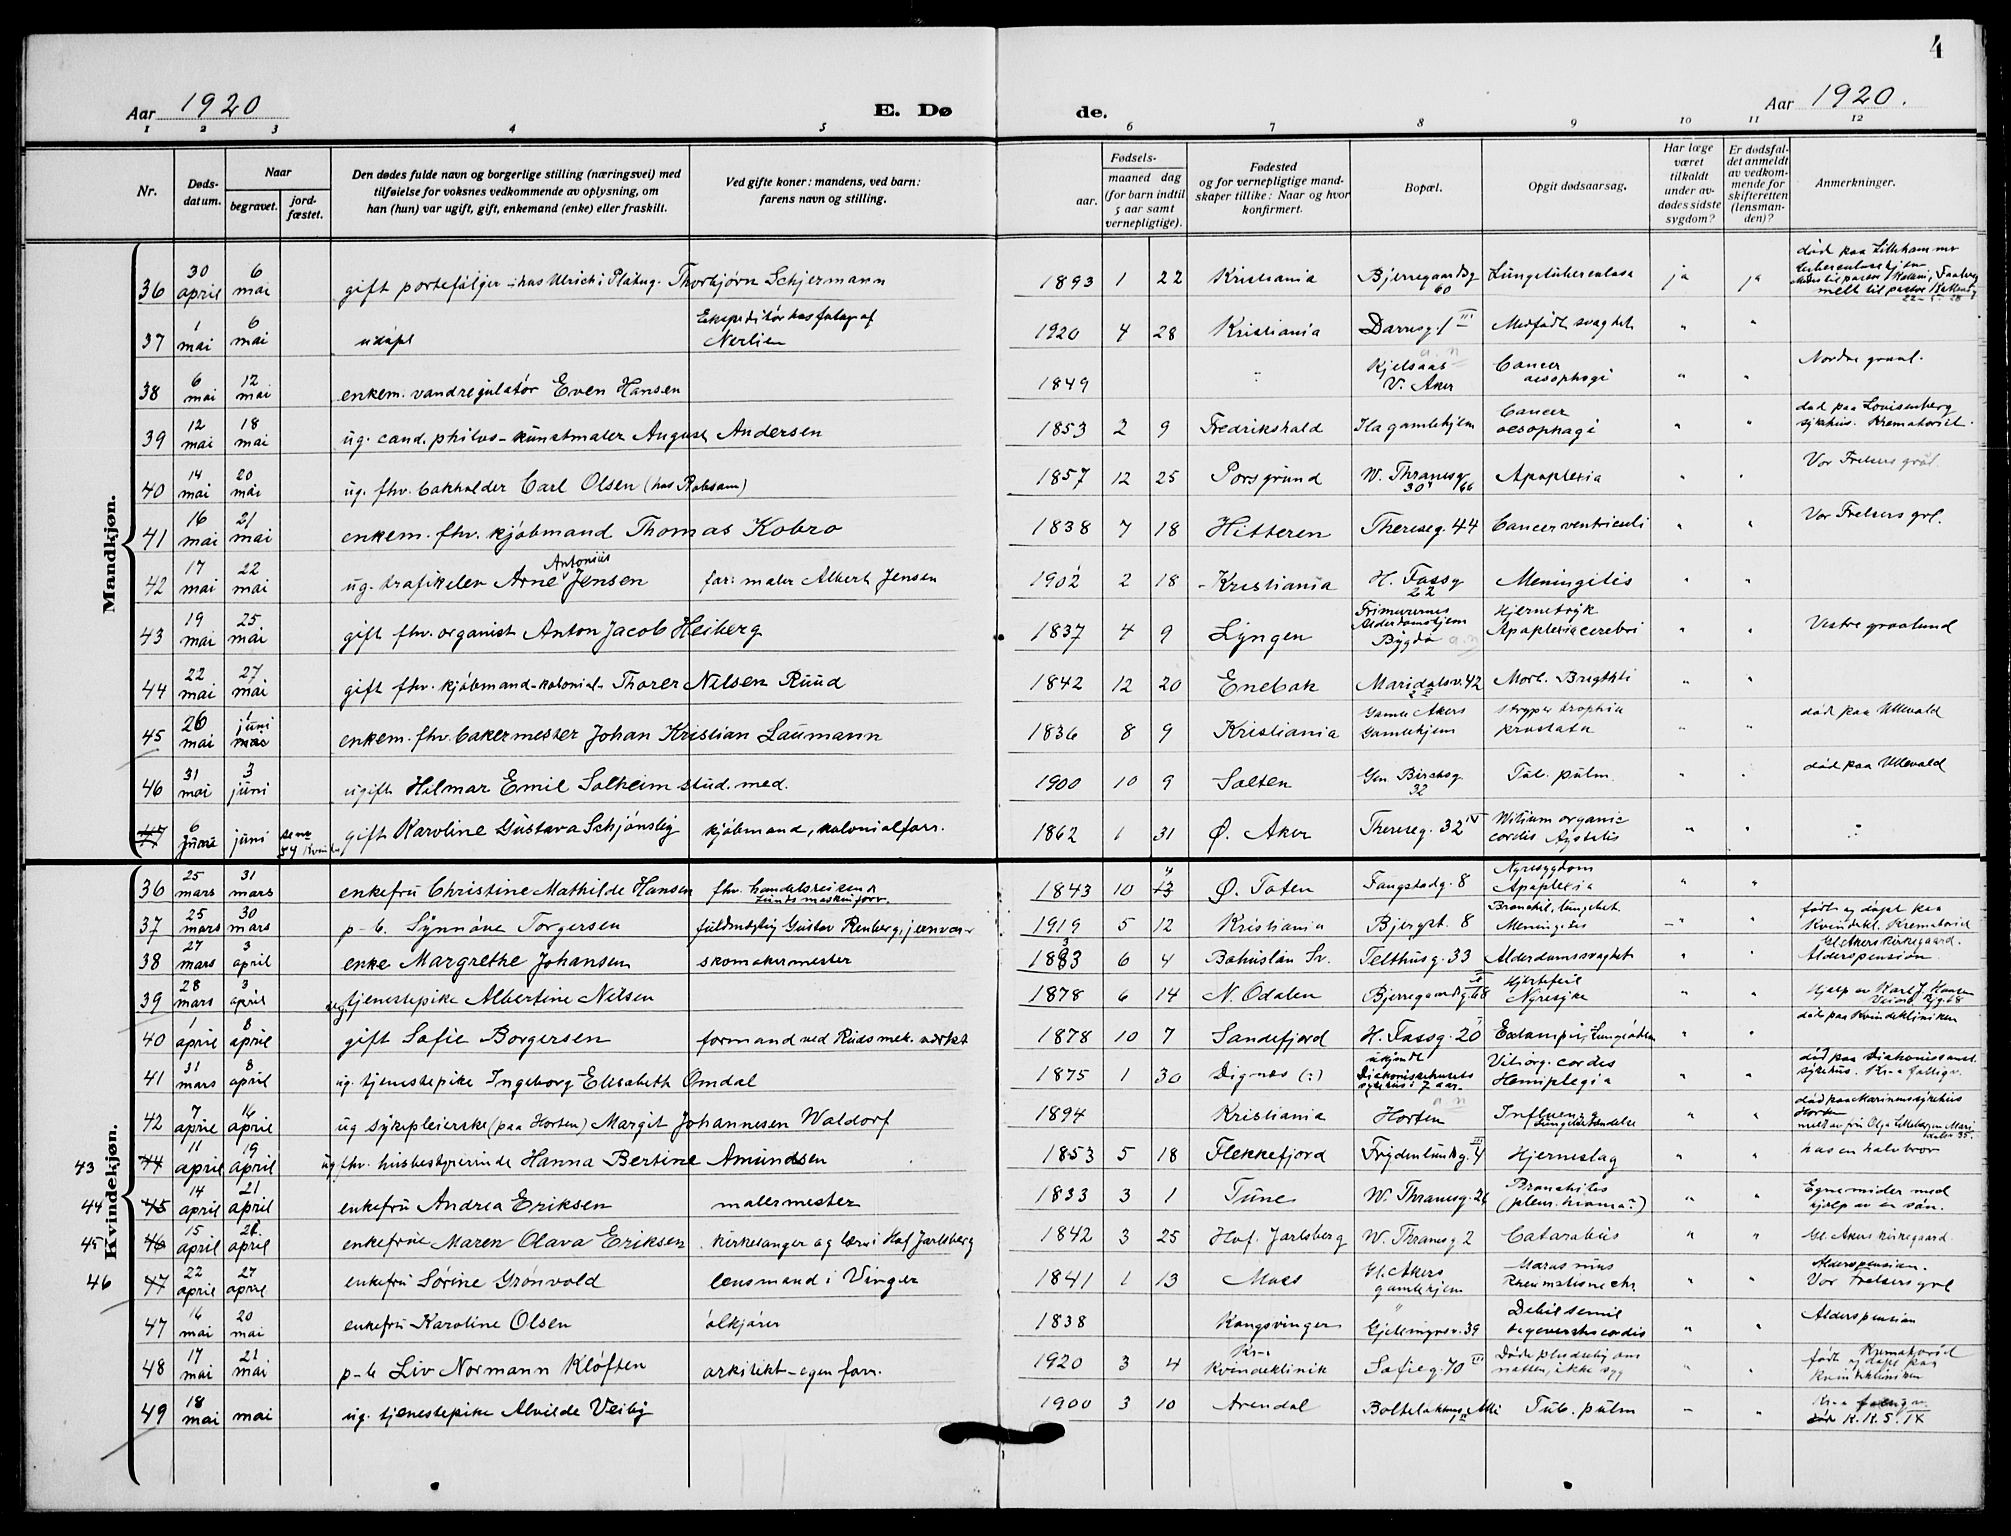 4
Aar 1920 E. Dø de. Aar 1920.
1 2 3 4 5 6 7 8 9 10 11 12
Nr.
Døds-
datum.
Naar
begravet. jord-
fæstet.
Den dødes fulde navn og borgerlige stilling (næringsvei) med
tilføielse for voksnes vedkommende av oplysning, om
han (hun) var ugift, gift, enkemand (enke) eller fraskilt.
Ved gifte koner: mandens, ved barn:
farens navn og stilling.
Fødsels-
aar. maaned dag
(for barn indtil
5 aar samt
vernepligtige).
Fødested
og for vernepligtige mand-
skaper tillike: Naar og hvor
konfirmert.
Bopæl.
Opgit dødsaarsag.
Har læge
været
tilkaldt
under av-
dødes sidste
sygdom?
Er dødsfal-
det anmeldt
av vedkom-
mende for
skifteretten
(lensman-
den)?
Anmerkninger.
Mandkjøn.
36 30 april 6 mai gift portefølger Thorbjørn Schjermann 1893 1 22 Kristiania Bjerregaardsg 60 Lungetuberculose ja ja død paa Lillehammer
37 1 mai 6 mai udøpt Ekspeditør hos fotograf Nerlien 1920 4 28 Kristiania Darresg. 1 III Medfødt svaghet " "
38 6 mai 12 mai enkem. vandregulatør Even Hansen 1849 Kjelsaas V. Aker Cancer oesophagi " " Nordre gravl.
39 12 mai 18 mai ug. cand. philos - kunstmaler August Andersen 1853 2 9 Fredrikshald Ila gamlehjem Cancer oesophagi " " død paa Lovisenberg sykehus. Krematoriet.
40 14 mai 20 mai ug. fhv. bokholder Carl Olsen (hos Robsam) 1857 12 25 Porsgrund W. Thranesg 30 Apoplexia " " Vor Frelsers grvl.
41 16 mai 21 mai enkem. fhv. kjøbmand Thomas Kobro 1838 7 18 Hitteren Thereseg. 44 Cancer ventriculi " " Vor Frelsers grvl.
42 17 mai 22 mai ug. trafikelev Arne Antonius Jensen far: maler Albert Jensen 1902 2 18 Kristiania H. Fossg 22 Meningitis " "
43 19 mai 25 mai gift fhv. organist Anton Jacob Heiberg 1837 4 9 Lyngen Frimurernes Alderdomshjem Bygdø Hjernetryk Apoplexia cerebri " " Vestre gravlund
44 22 mai 27 mai gift fhv. kjøbmand - kolonial - Thorer Nilsen Ruud 1842 12 20 Enebak Maridalsv. 42 Morb. Brigthti " "
45 26 mai 1 juni enkem. fhv. bakermester Johan Kristian Laumann 1836 8 9 Kristiania Gamle Akers Gamlehjem prostata " " død paa Ullevold
46 31 mai 3 juni ugift Hilmar Emil Solheim stud. med. 1900 10 9 Salten Gen. Birchsg. 32 Tub. pulm. " " død paa Ullevold
47 6 juni juni se nr 54 Kvinder gift Karoline Gustava Schjønsby kjøbmand, kolonialforr. 1862 1 31 Ø. Aker Thereseg. 32 IV Vitium organic cordis " "
Kvindekjøn.
36 25 mars 31 mars enkefru Christine Mathilde Hansen fhv. handelsreisende 1843 10 Ø. Toten Fougstadg. 8 Nyresygdom Apoplexia " "
37 25 mars 30 mars p-b. Synnøve Torgersen fuldmægtig Gustav Renberg, jernvar- 1919 5 12 Kristiania Bjergst. 8 Meningitis - " født og døpt paa Kvindekl. Krematoriet
38 27 mars 3 april enke Margrethe Johansen skomakermester 1833 6 4 Bohuslän Sv. Telthusg. 33 Alderdomssvaghet " " Gl. Akers kirkegaard. Alderspension
39 28 mars 3 april ug. tjenestepike Albertine Nilsen 1878 6 14 N. Odalen Bjerregaardsg. 68 Hjertefeil Nyresyke " " Hjelp av Karl J. Hansen
40 1 april 8 april gift Sofie Borgersen formand ved Ruds mek. verksted 1878 10 7 Sandefjord H. Fossg. 20 " " død paa Kvindekliniken
41 31 mars 8 april ug. tjenestepike Ingeborg Elisabeth Omdal 1875 1 30 Dignes (:) Diakonissehusets sykehus i 7 aar Vit. org. cordis Hemiplegia " " død paa Diakonisseanst. sykehus.
42 7 april 16 april ug sykepleierske (paa Horten) Margit Johannesen Waldorf 1894 Kristiania Horten Influenza Lungebetændelse " " død paa Marinens sykehus Horten
43 44 11 april 19 april ug fhv. husbestyrerinde Hanna Bertine Amundsen 1853 5 18 Flekkefjord Frydenlundsg. 4 III Hjerneslag " " hos en halvbror
44 45 14 april 21 april enkefru Andrea Eriksen malermester 1833 3 1 Tune W. Thranesg. 26 Bronchitis " " Egne midler med hjelp av en søn.
45 46 15 april april enkefrue Maren Olava Eriksen kirkesanger og lærer i Hof Jarlsberg 1842 3 25 Hof. Jarlsberg W. Thranesg 2 " " Gl. Akers kirkegaard.
46 47 22 april 27 april enkefru Sørine Grønvold lensmand i Vinger 1841 1 13 Moss Gl. Akers gamlehjem Marasmus Rheumatisme chr. " " Alderspension. Vor Frelsers grvl
47 16 mai 20 mai enkefru Karoline Olsen ølkjører 1838 Kongsvinger " " Alderspension
48 17 mai 21 mai p-b Liv Normann Kløften arkitekt - egen forr. 1920 3 4 Kr.-a Kvindeklinik Sofieg. 70 III Døde pludselig om natten, ikke syg " Krematoriet født og døpt paa Kvindekliniken
49 18 mai mai ug. tjenestepike Alvilde Veiby 1900 3 10 Arendal Tub. pulm - " død K. K. S. IX